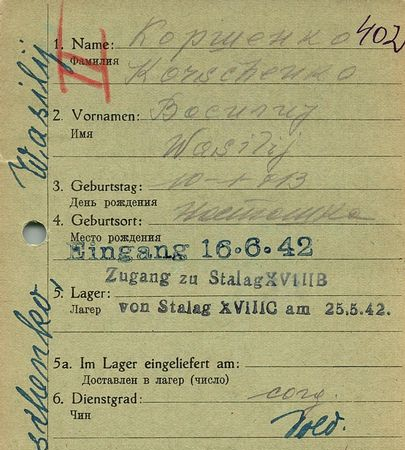 1. Name: Коршенко 402
Фамилия Korschenko
II
2. Vornamen: Василий
Имя Wasilij
3. Geburtstag:
День рождения
4. Geburtsort:
Место рождения
Eingang 16.6.42
Zugang zu Stalag XVIIIB
5. Lager: von Stalag XVIIIC am 25.5.42.
Лагер
5a. Im Lager eingeliefert am:
Доставлен в лагер (число)
6. Dienstgrad:
Чин Sold.
schenko, Wasilij